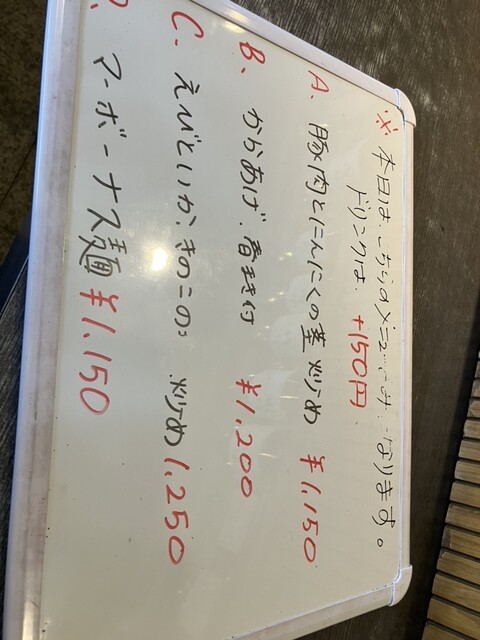 ※ 本日は、こちらのメニューのみになります。
ドリンクは、+150円、
A. 豚肉とにんにくの茎炒め ¥1,150
B. からあげ、春巻付 ¥1,200
C. えびといか、きのこの炒め 1,250
D. マーボーナス麺 ¥1,150